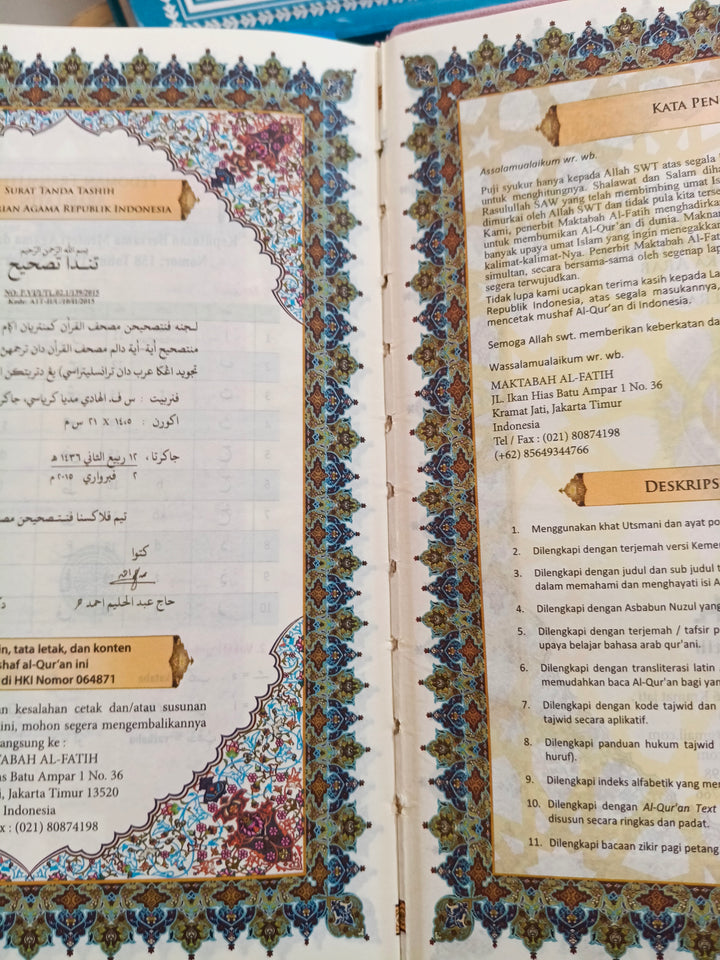 SURAT TANDA TASHIH
RIAN AGAMA REPUBLIK INDONESIA
بسم الله الرحمن الرحيم
تندا تصحيح
NO: P.VI/1/TL.02.1/139/2015
Kode: AIT-II/U/10/II/2015
لجنه فنتصحيحن مصحف القرأن كمنترين اݢام
منتصحيح أية-أية دالم مصحف القرأن دان ترجمهن
تجويد
عرب دان ترانسليتراسي) يغ دتربتكن
فنربيت : س ف. الهادي مديا كرياسي، جاكر
اكورن : ١٤،٥ x ٢١ س م
جاكرتا، ١٢ ربيع الثاني ١٤٣٦ هـ
٢ فبرواري ٢٠١٥ م
تيم فلاكسنا فنتصحيحن مص
كتوا
حاج عبد الحليم احمد
in, tata letak, dan konten
shaf al-Qur'an ini
di HKI Nomor 064871
n kesalahan cetak dan/atau susunan
ini, mohon segera mengembalikannya
angsung ke :
TABAH AL-FATIH
as Batu Ampar 1 No. 36
i, Jakarta Timur 13520
Indonesia
x : (021) 80874198
KATA PEN
Assalamualaikum wr. wb.
Puji syukur hanya kepada Allah SWT atas segala
untuk menghitungnya. Shalawat dan Salam diha
Rasulullah SAW yang telah membimbing umat Is
dimurkai oleh Allah SWT dan tidak pula kita terse
Kami, penerbit Maktabah Al-Fatih menghadirka
untuk membumikan Al-Qur'an di dunia. Makna
banyak upaya umat Islam yang ingin menegakkan
kalimat-kalimat-Nya. Penerbit Maktabah Al-Fa
simultan, secara bersama-sama oleh segenap lap
segera terwujudkan.
Tidak lupa kami ucapkan terima kasih kepada La
Republik Indonesia, atas segala masukannya,
mencetak mushaf Al-Qur'an di Indonesia.
Semoga Allah swt. memberikan keberkatan da
Wassalamualaikum wr. wb.
MAKTABAH AL-FATIH
JL. Ikan Hias Batu Ampar 1 No. 36
Kramat Jati, Jakarta Timur
Indonesia
Tel / Fax : (021) 80874198
(+62) 85649344766
DESKRIPS
1. Menggunakan khat Utsmani dan ayat po
2. Dilengkapi dengan terjemah versi Keme
3. Dilengkapi dengan judul dan sub judul t
dalam memahami dan menghayati isi A
4. Dilengkapi dengan Asbabun Nuzul yang
5. Dilengkapi dengan terjemah / tafsir p
upaya belajar bahasa arab qur'ani.
6. Dilengkapi dengan transliterasi latin
memudahkan baca Al-Qur'an bagi yan
7. Dilengkapi dengan kode tajwid dan
tajwid secara aplikatif.
8. Dilengkapi panduan hukum tajwid
huruf).
9. Dilengkapi indeks alfabetik yang me
10. Dilengkapi dengan Al-Qur'an Text
disusun secara ringkas dan padat.
11. Dilengkapi bacaan zikir pagi petang